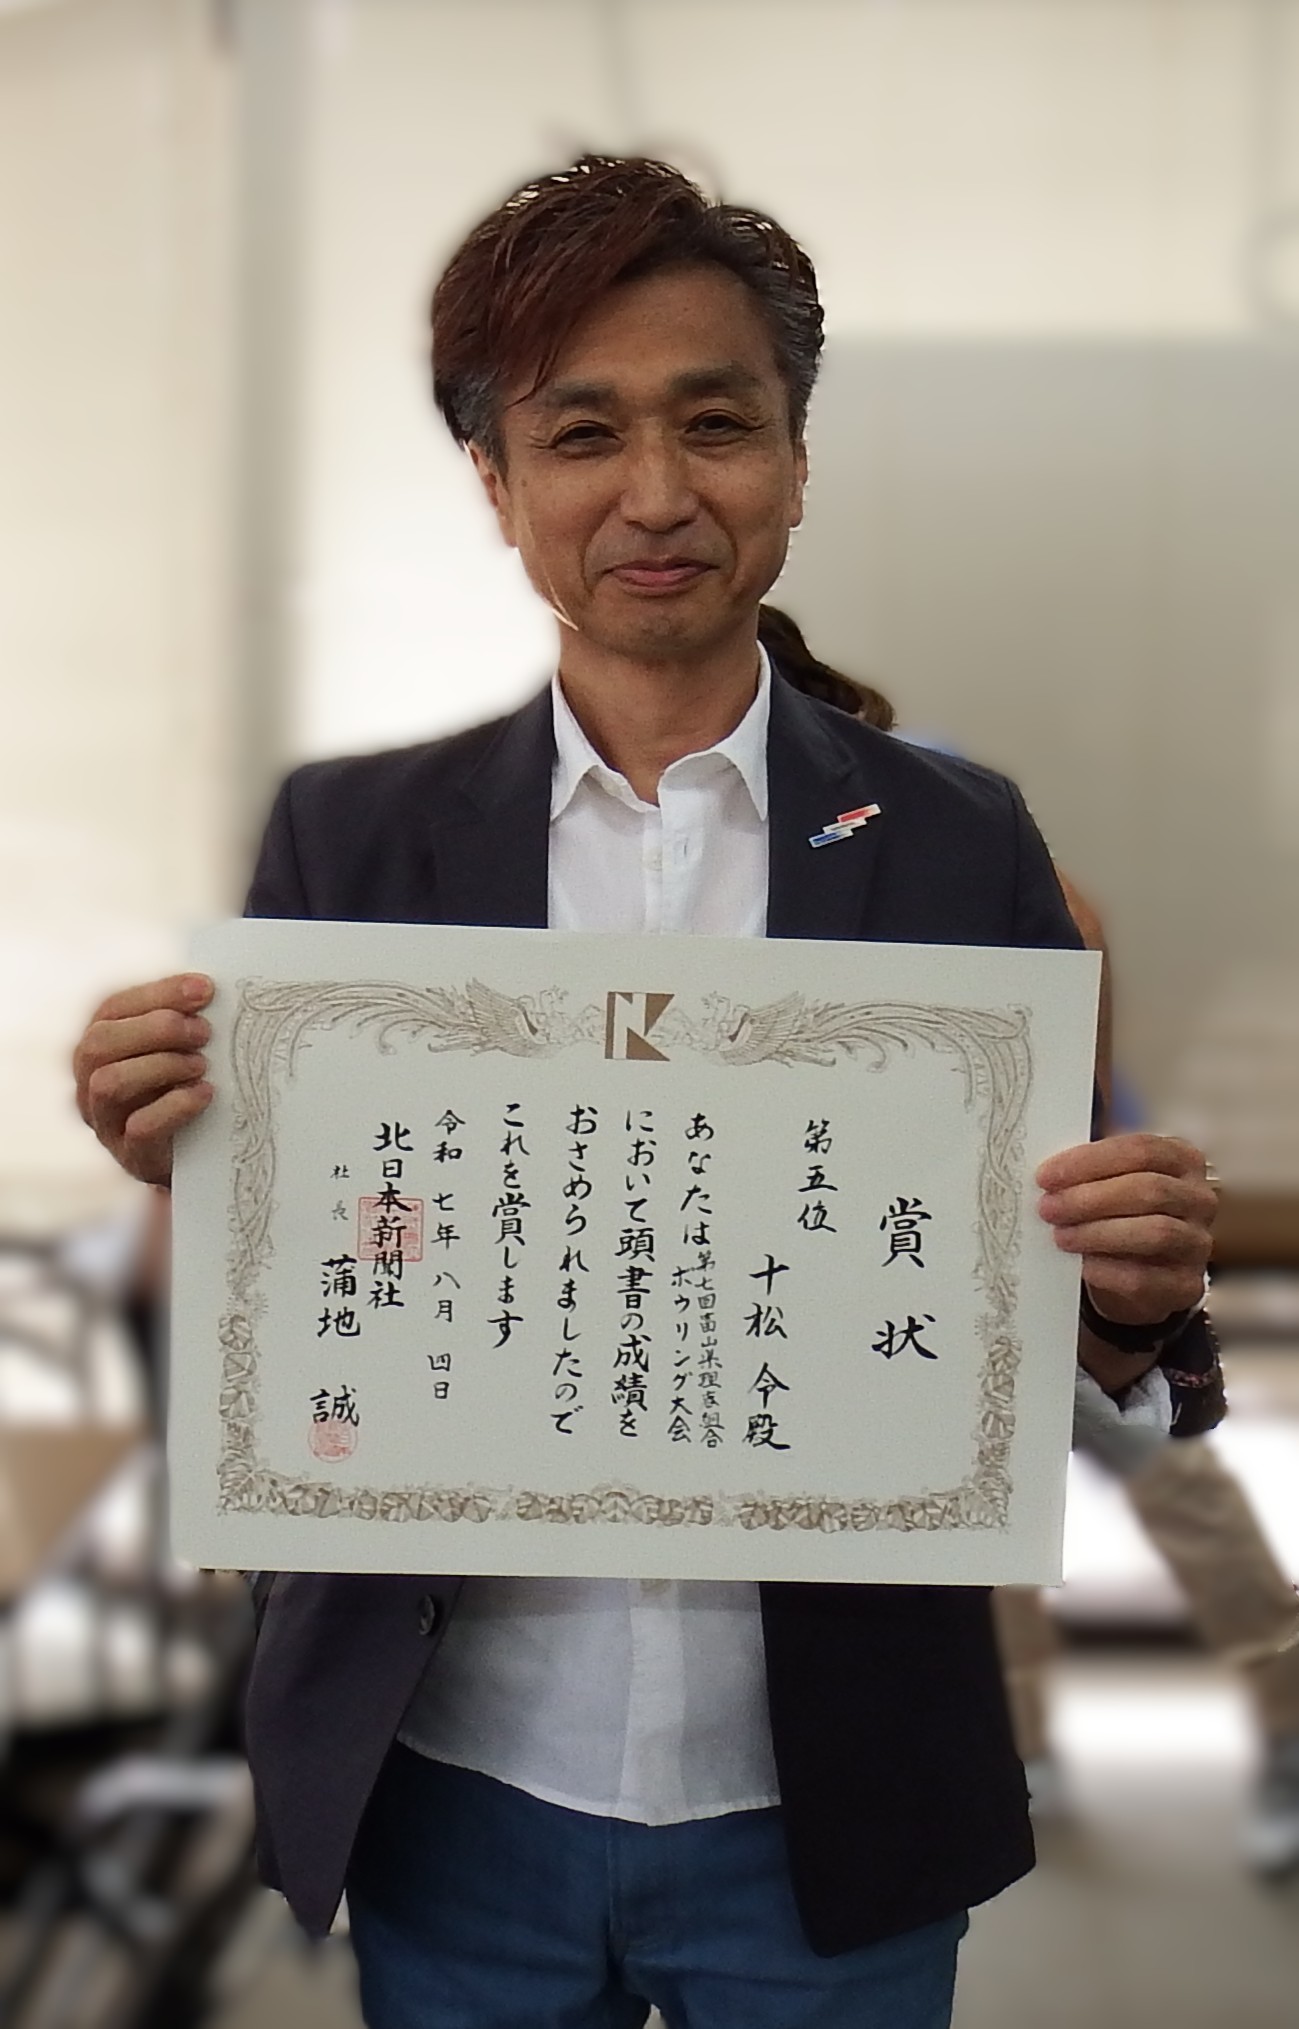 賞状
第五位
十松 令殿
あなたは第七回富山県理容組合
ボウリング大会
において頭書の成績を
おさめられましたので
これを賞します
令和 七年 八月 四日
北日本新聞社
社長 蒲地 誠